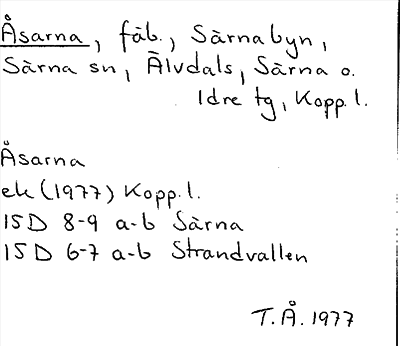 Åsarna, fäb., Särnabyn,
Särna sn, Älvdals, Särna o.
Idre tg, Kopp.l.
Åsarna
ek (1977) Kopp.l.
15D 8-9 a-b Särna
15D 6-7 a-b Strandvallen
T.Å. 1977